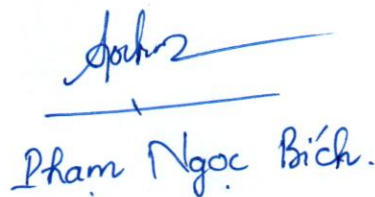 Phạm Ngọc Bích.